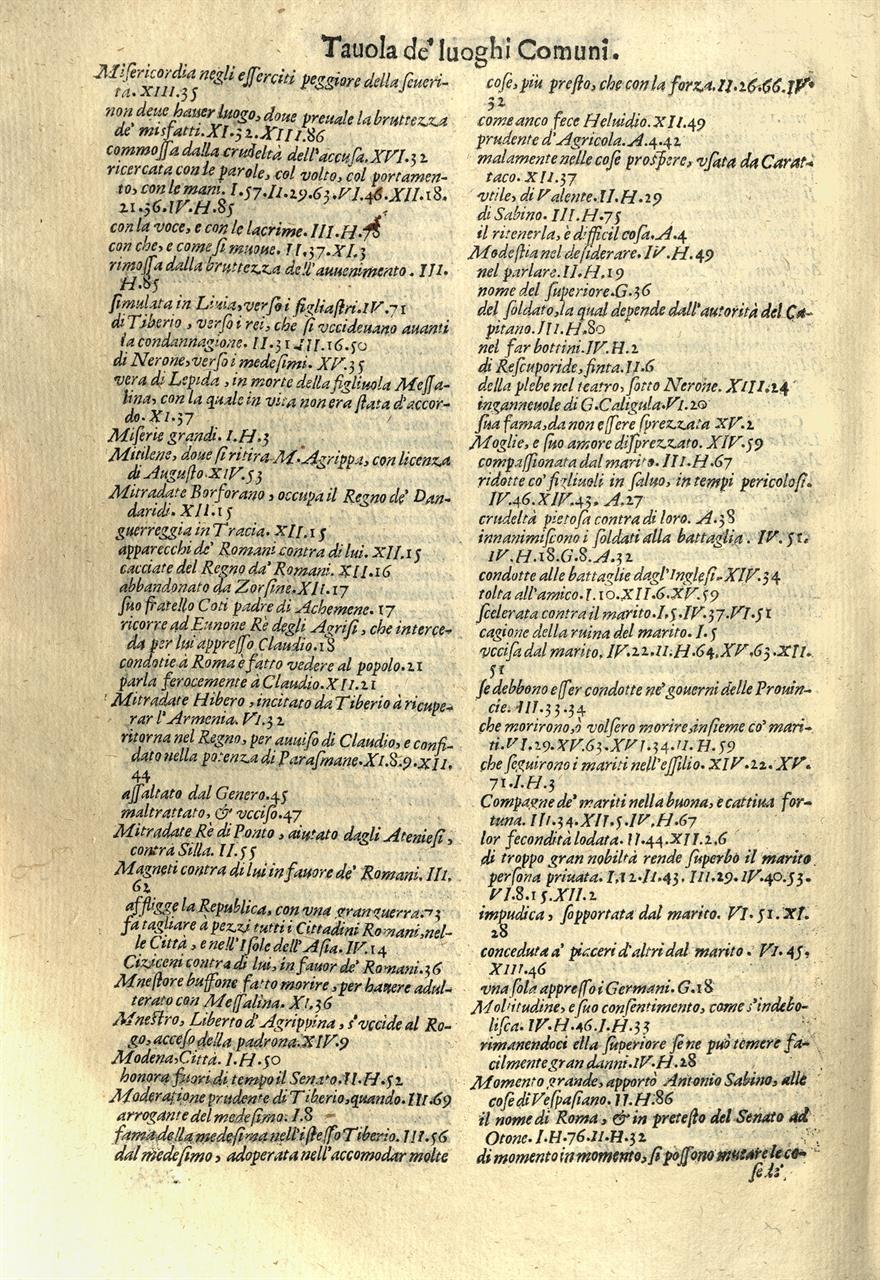 Tauola de' luoghi Comuni.
Misericordia negli esserciti peggiore della seueri-
tà. XIII.35
non deue hauer luogo, doue preuale la bruttezza
de' misfatti. XI.32. XIII.86
commossa dalla crudeltà dell'accusa. XVI.32
ricercata con le parole, col volto, col portamen-
to, con le mani. I.57.II.29.63.VI.46.XII.18.
21.36.IV.H.85
con la voce, e con le lacrime. III.H.
con che, e come si muoue. II.37.XI.3
rimossa dalla bruttezza dell'auuenimento. III.
H.85
simulata in Liuia, verso i figliastri. IV.71
di Tiberio, verso i rei, che si vccideuano auanti
la condannagione. II.31.III.16.50
di Nerone, verso i medesimi. XV.35
vera di Lepida, in morte della figliuola Messa-
lina, con la quale in vita non era stata d'accor-
do. XI.37
Miserie grandi. I.H.3
Mitilene, doue si ritira M. Agrippa, con licenza
di Augusto. XIV.53
Mitradate Borforano, occupa il Regno de' Dan-
daridi. XII.15
guerreggia in Tracia. XII.15
apparecchi de' Romani contra di lui. XII.15
cacciate del Regno da' Romani. XII.16
abbandonato da Zorsine. XII.17
suo fratello Coti padre di Achemene. 17
ricorre ad Eunone Rè degli Agrisi, che interce-
da per lui appresso Claudio. 18
condotie à Roma è fatto vedere al popolo. 21
parla ferocemente à Claudio. XII.21
Mitradate Hibero, incitato da Tiberio à ricupe-
rar l'Armenia. VI.32
ritorna nel Regno, per auuiso di Claudio, e confi-
dato nella potenza di Farasmane. XI.8.9.XII.
44
assaltato dal Genero. 45
maltrattato, & vcciso. 47
Mitradate Rè di Ponto, aiutato dagli Ateniesi,
contra Silla. II.55
Magneti contra di lui in fauore de' Romani. III.
62
affligge la Republica, con vna gran guerra. 73
fa tagliare a pezzi tutti i Cittadini Romani, nel-
le Città, e nell'Isole dell'Asia. IV.14
Ciziceni contra di lui, in fauor de' Romani. 36
Mnestore buffone fatto morire, per hauere adul-
terato con Messalina. XI.36
Mnestro, Liberto d'Agrippina, s'vccide al Ro-
go, acceso della padrona. XIV.9
Modena, Città. I.H.50
honora fuori di tempo il Senato. II.H.52
Moderatione prudente di Tiberio, quando. III.69
arrogante del medesimo. I.8
fama della medesima nell'istesso Tiberio. III.56
dal medesimo, adoperata nell'accomodar molte
cose, piu presto, che con la forza. II.26.66.IV.
32
come anco fece Heluidio. XII.49
prudente d'Agricola. A.4.42
malamente nelle cose prospere, vsata da Carat-
taco. XII.37
vtile, di Valente. II.H.29
di Sabino. III.H.75
il ritenerla, è difficil cosa. A.4
Modestia nel desiderare. IV.H.49
nel parlare. II.H.19
nome del superiore. G.36
del soldato, la qual depende dall'autorità del Ca-
pitano. III.H.80
nel far bottini. IV.H.2
di Rescuporide, finta. II.6
della plebe nel teatro, sotto Nerone. XIII.24
ingannevole di G. Caligula. VI.20
sua fama, da non essere sprezzata XV.2
Moglie, e suo amore disprezzato. XIV.59
compassionata dal marito. III.H.67
ridotte co' figliuoli in saluo, in tempi pericolosi.
IV.46.XIV.43. A.27
crudeltà pietosa contra di loro. A.38
innanimiscono i soldati alla battaglia. IV.51.
IV.H.18.G.8.A.32
condotte alle battaglie dagl'Inglesi. XIV.34
tolta all'amico. I.10.XII.6.XV.59
scelerata contra il marito. I.5.IV.37.VI.51
cagione della ruina del marito. I.5
vccisa dal marito. IV.22.II.H.64.XV.63.XII.
51
se debbono esser condotte ne' gouerni delle Prouin-
cie. III.33.34
che morirono, ò volsero morire, insieme co' mari-
ti. VI.29.XV.63.XVI.34.II.H.59
che seguirono i mariti nell'essilio. XIV.22.XV.
71.I.H.3
Compagne de' mariti nella buona, e cattiua for-
tuna. III.34.XII.5.IV.H.67
lor fecondità lodata. II.44.XII.2.6
di troppo gran nobiltà rende superbo il marito
persona priuata. I.12.II.43.III.29.IV.40.53.
VI.8.15.XII.2
impudica, sopportata dal marito. VI.51.XI.
28
conceduta a' piaceri d'altri dal marito. VI.45.
XIII.46
vna sola appresso i Germani. G.18
Moltitudine, e suo consentimento, come s'indebo-
lisca. IV.H.46.I.H.33
rimanendoci ella superiore se ne può temere fa-
cilmente gran danni. IV.H.28
Momento grande, apportò Antonio Sabino, alle
cose di Vespasiano. II.H.86
il nome di Roma, & in pretesto del Senato ad
Otone. I.H.76.II.H.32
di momento in momento, si possono mutare le co-
se di